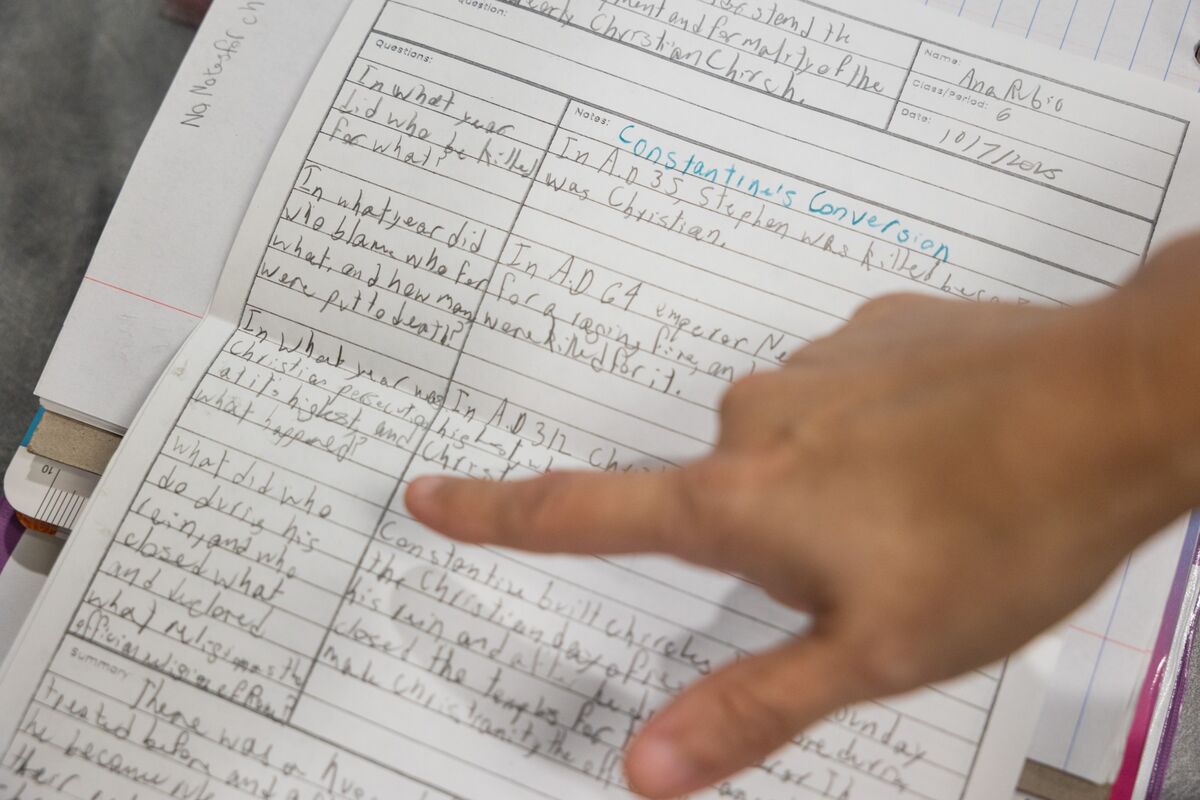 No Notes for ch
question:
stand the
ment and formality of the
early Christian Chirsh.
Name: Ana Rubio
Class/Period: 6
Date: 10/7/2025
Questions:
In what year
did who be killed
for what?
In what year did
who blame who for
what, and how many
were put to death?
In what year was
Christian persecution
at it's highest and
what happened?
what did who
do durig his
rein, and who
closed what
and declored
what religion as the
official religion of
Notes: Constantine's Conversion
In A.D 35, Stephen was killed beca
was Christian.
In A.D 64 emperor Ne
for a raging fire, an
were killed for it.
In A.D 312 Chris
highest wh
Christ
Constantine built chirches
the Christian day of res
his ruin and
closed the temples for
make christianity the off
unday
durin
or II
10
Summary: There was a
treated before and a
he became rule
their